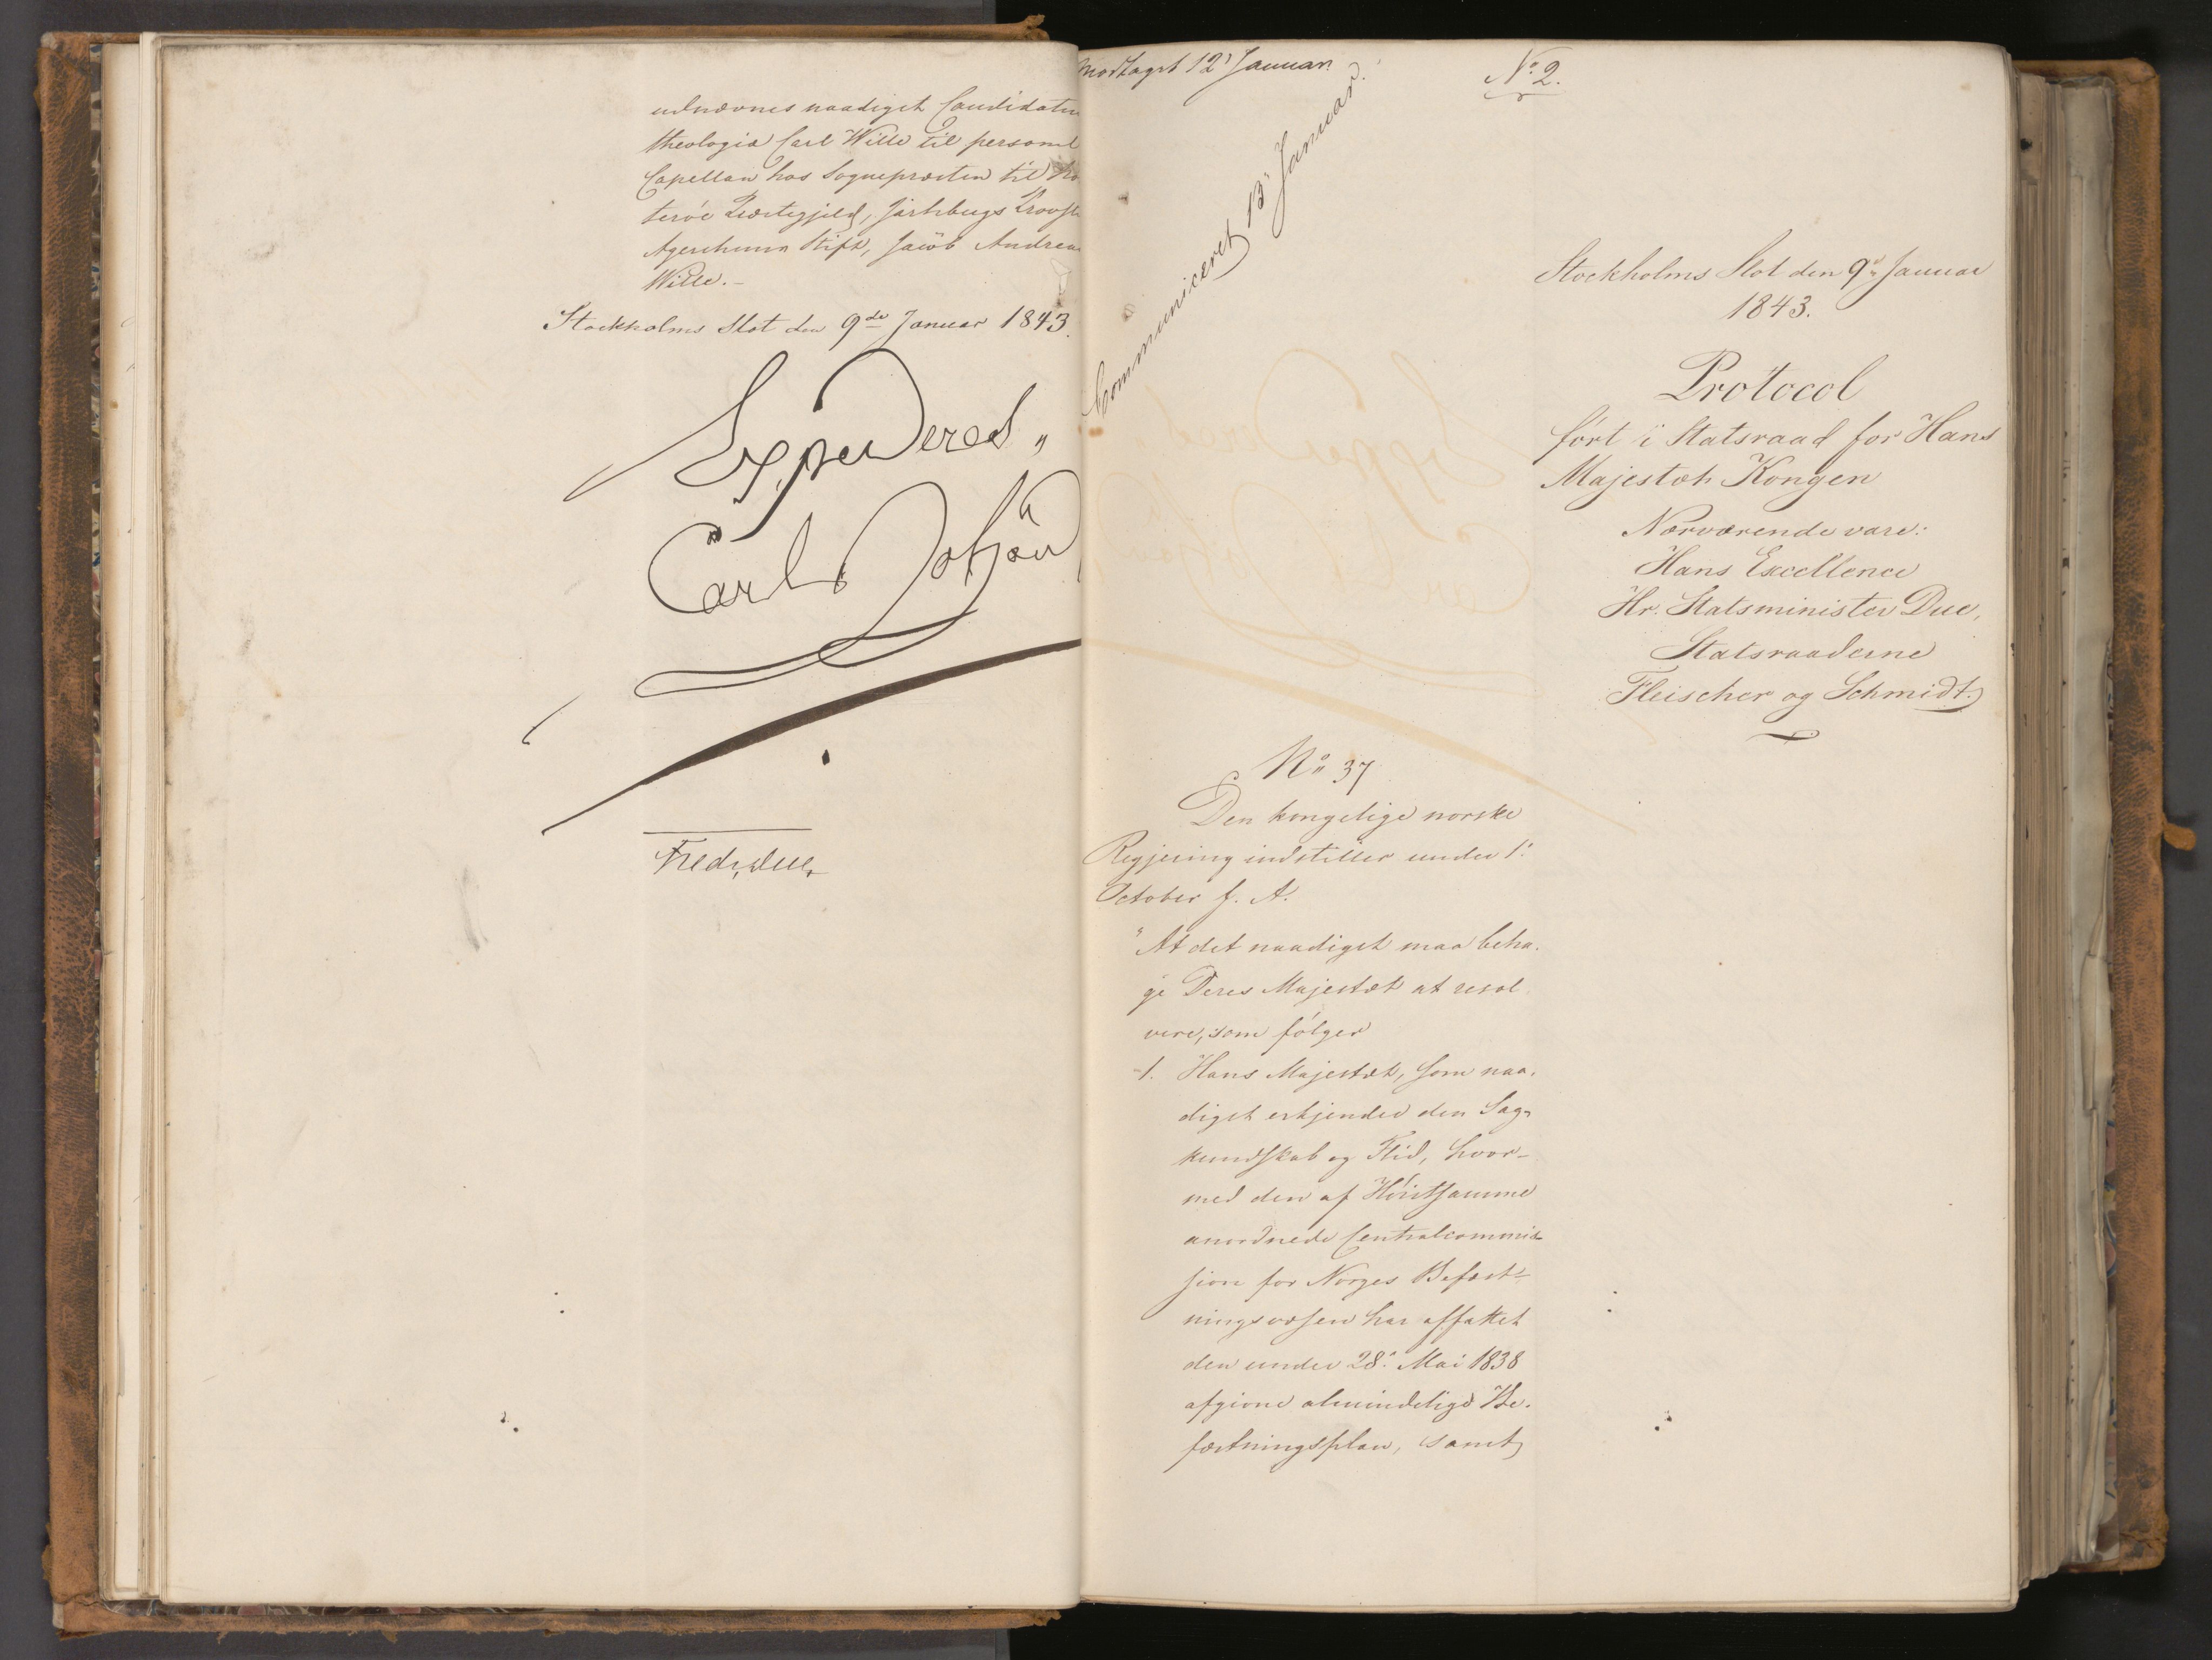 udnævnes naadigst Candidatus
theologiæ Carl Wille til personel
Capellan hos Sognepræsten til
terøe Præstegjeld, Jarlsbergs Provstie
Agershuus Stift, Jacob Andreas
Wille.-
Stockholms Slot den 9de Januar 1843.
Expederes„
Carl Johan
Fredr. Due.
Modtaget 12' Januar.
Communiceret 13' Januar.
No 2.
Stockholms Slot den 9' Januar
1843.
Protocol
ført i Statsraad for Hans
Majestæt Kongen
Nærværende vare:
Hans Excellence
Hr. Statsminister Due,
Statsraaderne
Fleischer og Schmidt.
No 37
Den kongelige norske
Regjering indstiller under 1'
October f. A.
"At det naadigst maa beha-
ge Deres Majestæt at resol
vere, som følger
1. Hans Majestæt, som naa-
digst erkjender den Sag-
kundskab og Flid, hvor-
med den af Høistsamme
anordnede Centralcommis
sion for Norges Befæst-
ningsvæsen har affattet
den under 28' Mai 1838
afgivne almindelige Be-
fæstningsplan, samt